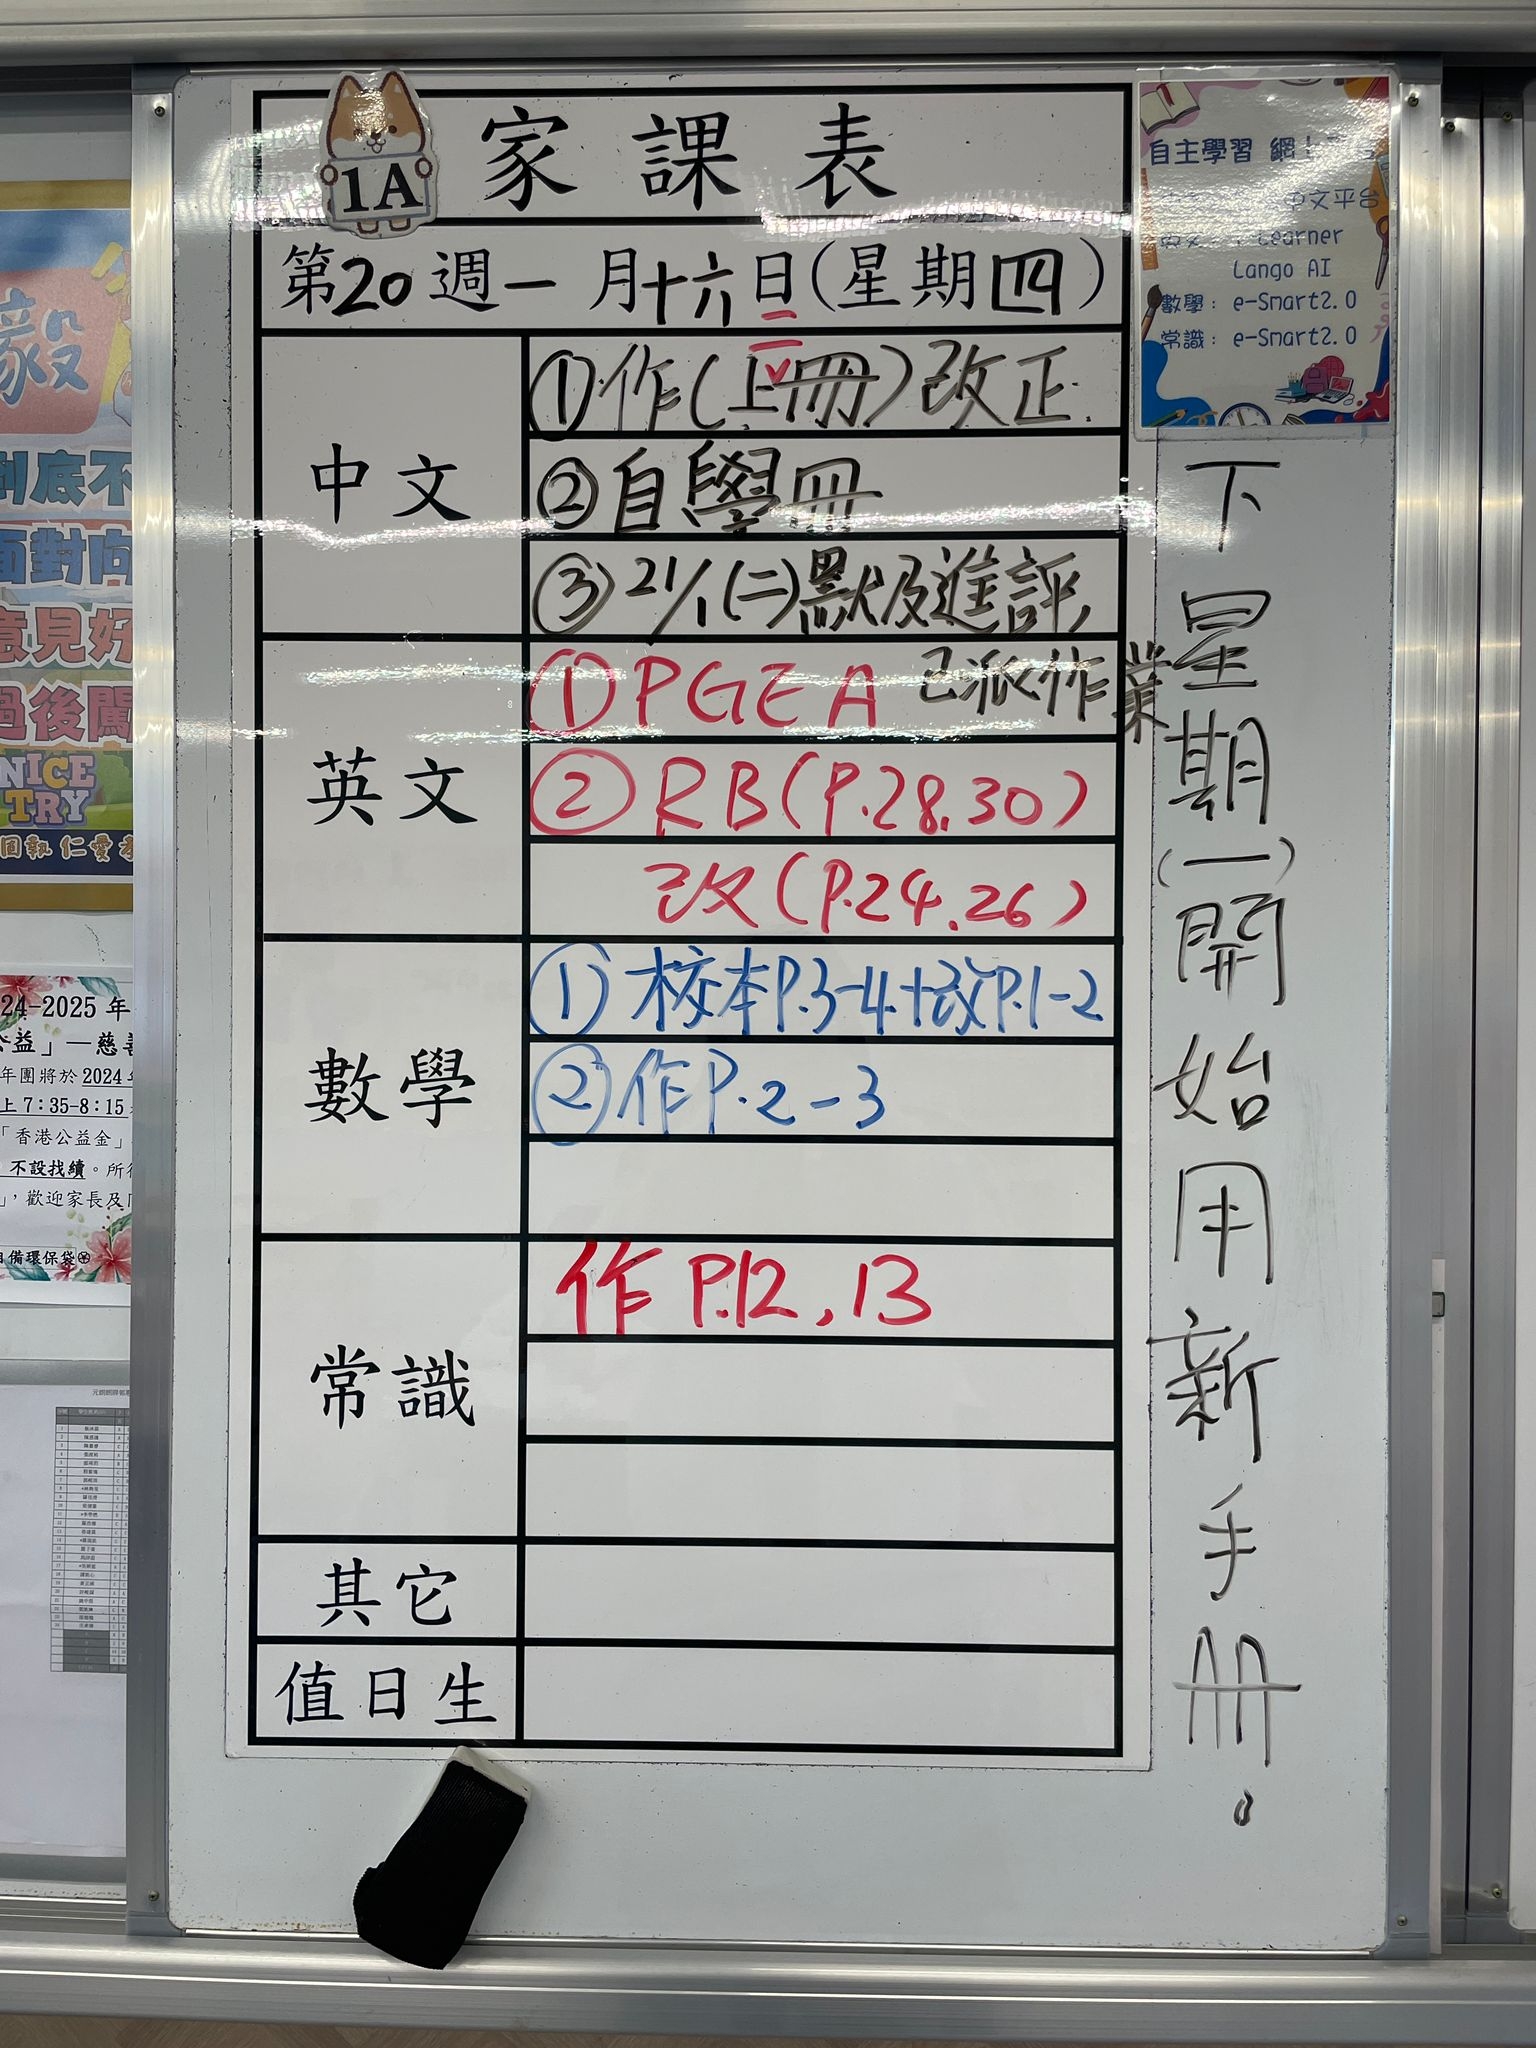 1A
家課表
第20週一月十六日(星期四)
中文
①作(上冊)改正
②自學冊
③21/1(二)默及進評,
已派作業
英文
①PGEA
②RB(P.28,30)
改(P.24,26)
數學
①校本P.3-4+改P.1-2
②作P.2-3
常識
作P.12,13
其它
值日生
自主學習 網上
中文平台
Learner
Lango AI
數學: e-Smart2.0
常識: e-Smart2.0
下星期(一)開始用新手冊。
毅
到底不
面對向
意見好
過後闖
NICE
TRY
固執 仁愛
24-2025年
公益」—慈善
年團將於 2024
上 7:35-8:15
「香港公益金」
不設找續。所
」,歡迎家長及
自備環保袋